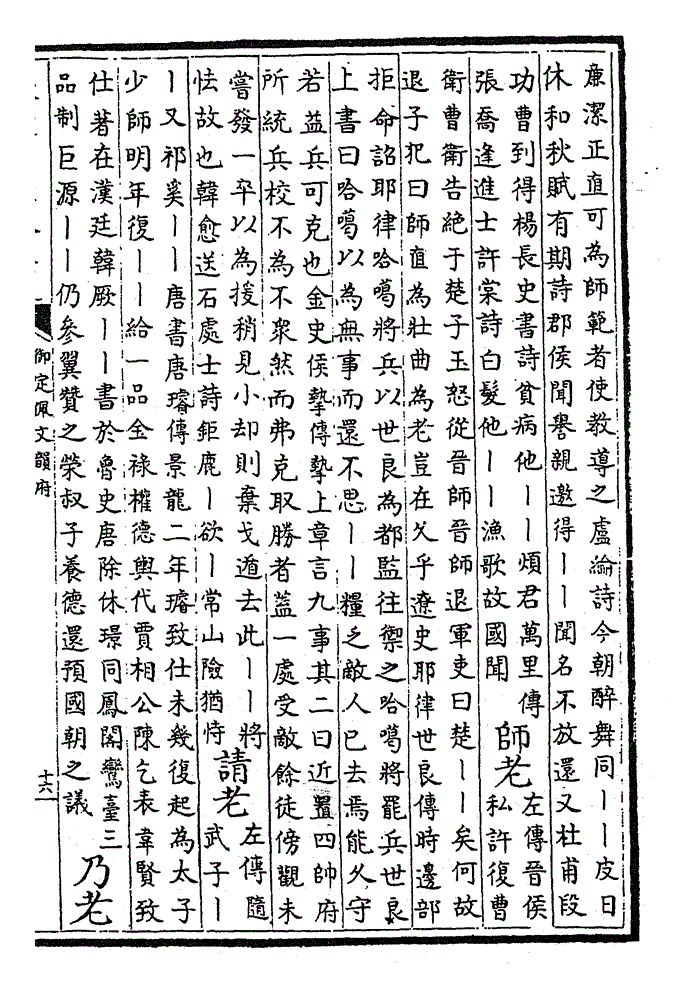 廉潔正直可為師範者使教導之盧綸詩今朝醉舞同丨丨皮日
休和秋賦有期詩郡侯聞譽親邀得丨丨聞名不放還又杜甫段
功曹到得楊長史書詩貧病他丨丨煩君萬里傳
張喬逢進士許棠詩白髮他丨丨漁歌故國聞
師老
左傳晉侯
私許復曹
衛曹衛告絕于楚子玉怒從晉師晉師退軍吏曰楚丨丨矣何故
退子犯曰師直為壯曲為老豈在久乎遼史耶律世良傳時邊部
拒命詔耶律哈噶將兵以世良為都監往禦之哈噶將罷兵世良
上書曰哈噶以為無事而還不思丨丨糧乏敵人已去焉能久守
若益兵可克也金史侯摯傳摯上章言九事其二曰近置四帥府
所統兵校不為不衆然而弗克取勝者蓋一處受敵餘徒傍觀未
嘗發一卒以為援稍見小却則棄戈遁去此丨丨將
怯故也韓愈送石處士詩鉅鹿丨欲丨常山險猶恃
請老
左傳隨
武子丨
丨又祁奚丨丨唐書唐璿傳景龍二年璿致仕未幾復起為太子
少師明年復丨丨給一品全祿權德輿代賈相公陳乞表韋賢致
仕著在漢廷韓厥丨丨書於魯史唐除休璟同鳳閣鸞臺三
品制巨源丨丨仍參翼贊之榮叔子養德還預國朝之議
乃老
御定佩文韻府
十六